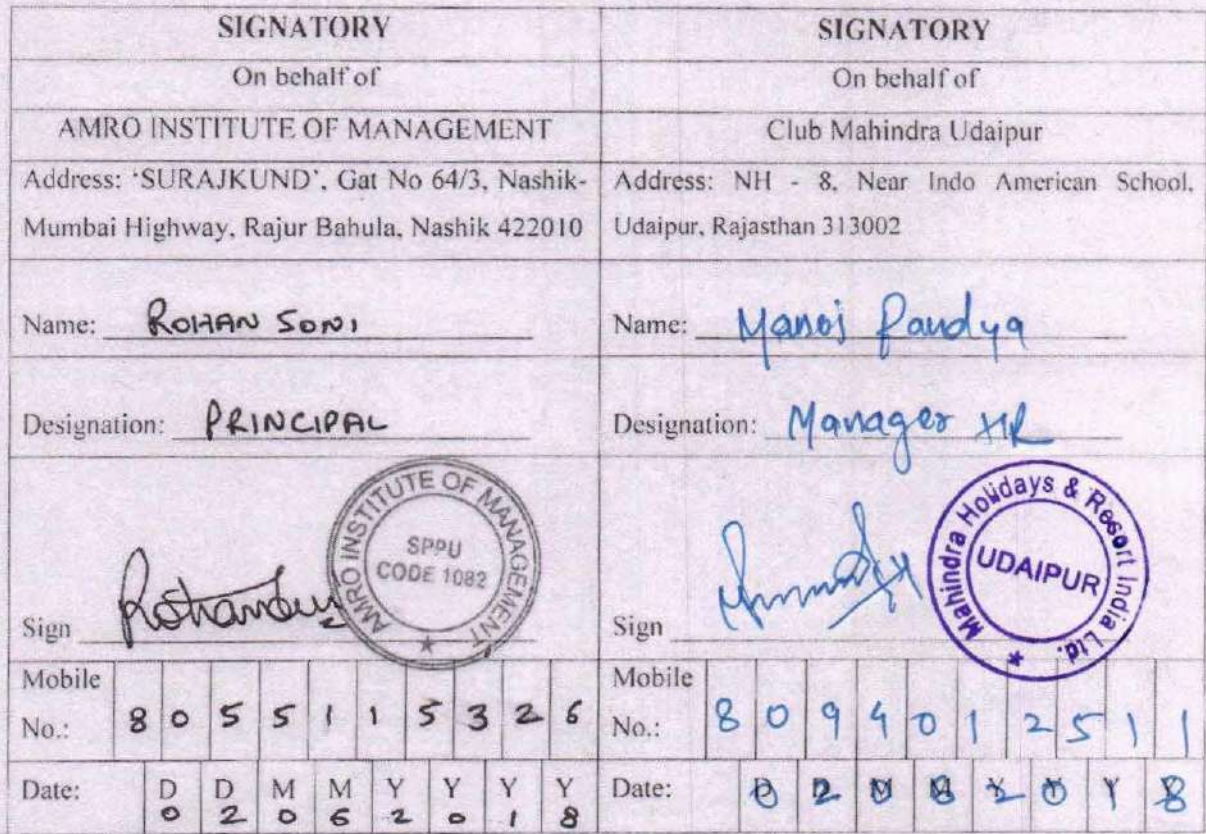 SIGNATORY
On behalf of
AMRO INSTITUTE OF MANAGEMENT
Address: 'SURAJKUND', Gat No 64/3, Nashik-
Mumbai Highway, Rajur Bahula, Nashik 422010
Name: ROHAN SONI
Designation: PRINCIPAL
Sign
AMRO INSTITUTE OF MANAGEMENT
SPPU
CODE 1082
Mobile
No.: 8 0 5 5 1 1 5 3 2 6
Date: D D M M Y Y Y Y
0 2 0 6 2 0 1 8
SIGNATORY
On behalf of
Club Mahindra Udaipur
Address: NH - 8, Near Indo American School,
Udaipur, Rajasthan 313002
Name: Manoj Pandya
Designation: Manager HR
Sign
Mahindra Holidays & Resort India Ltd.
UDAIPUR
Mobile
No.: 8 0 9 4 0 1 2 5 1 1
Date: D D M M Y Y Y Y